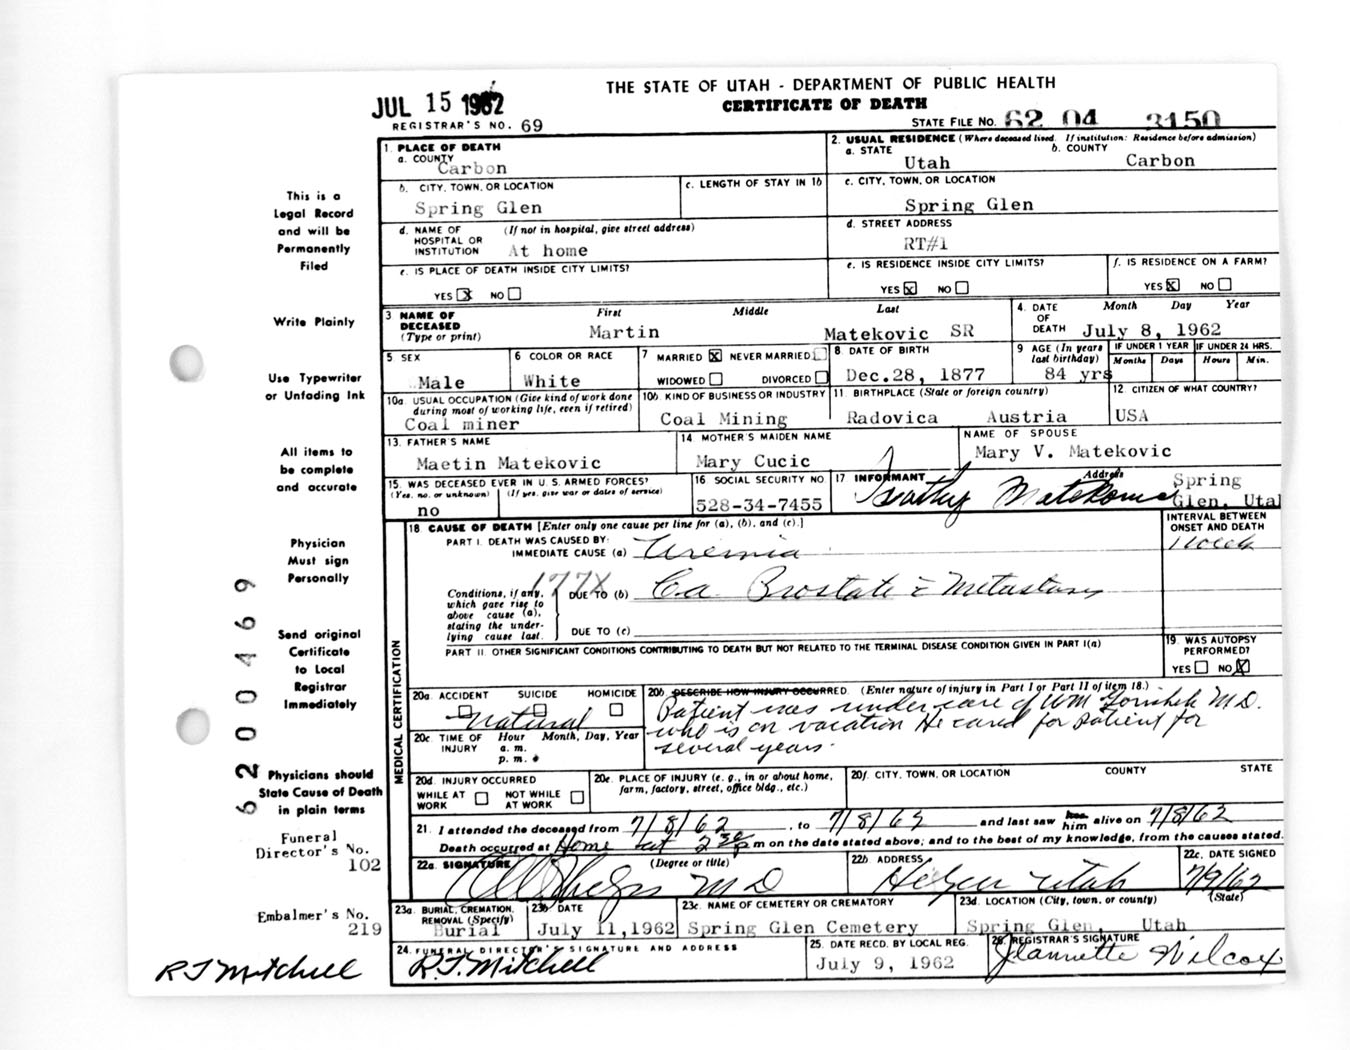 THE STATE OF UTAH - DEPARTMENT OF PUBLIC HEALTH
JUL 15 1962
CERTIFICATE OF DEATH
REGISTRAR'S NO. 69
STATE FILE NO. 62 04 3150
1. PLACE OF DEATH
a. COUNTY
Carbon
2. USUAL RESIDENCE (Where deceased lived. If institution: Residence before admission)
a. STATE
Utah
b. COUNTY
Carbon
b. CITY, TOWN, OR LOCATION
Spring Glen
c. LENGTH OF STAY IN 1b
c. CITY, TOWN, OR LOCATION
Spring Glen
d. NAME OF HOSPITAL OR INSTITUTION
(If not in hospital, give street address)
At home
d. STREET ADDRESS
RT#1
e. IS PLACE OF DEATH INSIDE CITY LIMITS?
YES X NO
e. IS RESIDENCE INSIDE CITY LIMITS?
YES X NO
f. IS RESIDENCE ON A FARM?
YES X NO
3 NAME OF DECEASED
(Type or print)
First
Middle
Last
Martin
Matekovic SR
4. DATE OF DEATH
Month Day Year
July 8, 1962
5 SEX
Male
6 COLOR OR RACE
White
7 MARRIED X NEVER MARRIED
WIDOWED DIVORCED
8 DATE OF BIRTH
Dec.28, 1877
9 AGE (In years last birthday)
84 yrs
IF UNDER 1 YEAR
Months Days
IF UNDER 24 HRS.
Hours Min.
10a. USUAL OCCUPATION (Give kind of work done during most of working life, even if retired)
Coal miner
10b. KIND OF BUSINESS OR INDUSTRY
Coal Mining
11. BIRTHPLACE (State or foreign country)
Radovica Austria
12. CITIZEN OF WHAT COUNTRY?
USA
13. FATHER'S NAME
Maetin Matekovic
14 MOTHER'S MAIDEN NAME
Mary Cucic
NAME OF SPOUSE
Mary V. Matekovic
15. WAS DECEASED EVER IN U.S. ARMED FORCES?
(Yes, no, or unknown)
(If yes, give war or dates of service)
no
16 SOCIAL SECURITY NO.
528-34-7455
17 INFORMANT
Address
Spring
Glen, Utah
18 CAUSE OF DEATH [Enter only one cause per line for (a), (b), and (c).]
PART I. DEATH WAS CAUSED BY:
IMMEDIATE CAUSE (a) Uremia
INTERVAL BETWEEN ONSET AND DEATH
1 week
177X
Conditions, if any, which gave rise to above cause (a), stating the underlying cause last.
DUE TO (b) Ca. Prostate c̄ Metastasis
DUE TO (c)
PART II. OTHER SIGNIFICANT CONDITIONS CONTRIBUTING TO DEATH BUT NOT RELATED TO THE TERMINAL DISEASE CONDITION GIVEN IN PART I(a)
19. WAS AUTOPSY PERFORMED?
YES NO X
MEDICAL CERTIFICATION
20a. ACCIDENT SUICIDE HOMICIDE
Natural
20b. DESCRIBE HOW INJURY OCCURRED. (Enter nature of injury in Part I or Part II of item 18.)
Patient was under care of WM Gorishek M D.
who is on vacation He cared for patient for
several years.
20c. TIME OF INJURY
Hour Month, Day, Year
a. m.
p. m.
20d. INJURY OCCURRED
WHILE AT WORK
NOT WHILE AT WORK
20e. PLACE OF INJURY (e. g., in or about home, farm, factory, street, office bldg., etc.)
20f. CITY, TOWN, OR LOCATION COUNTY STATE
21. I attended the deceased from 7/8/62, to 7/8/62 and last saw him alive on 7/8/62
Death occurred at Home at 2 30 p m on the date stated above; and to the best of my knowledge, from the causes stated.
22a. SIGNATURE
(Degree or title)
M D
22b. ADDRESS
Helper Utah
22c. DATE SIGNED
7/9/62
23a. BURIAL, CREMATION, REMOVAL (Specify)
Burial
23b DATE
July 11,1962
23c. NAME OF CEMETERY OR CREMATORY
Spring Glen Cemetery
23d. LOCATION (City, town, or county) (State)
Spring Glen, Utah
24. FUNERAL DIRECTOR'S SIGNATURE AND ADDRESS
R.J. Mitchell
25. DATE RECD. BY LOCAL REG.
July 9, 1962
26. REGISTRAR'S SIGNATURE
Jeannette Wilcox
This is a
Legal Record
and will be
Permanently
Filed
Write Plainly
Use Typewriter
or Unfading Ink
All items to
be complete
and accurate
Physician
Must sign
Personally
Send original
Certificate
to Local
Registrar
Immediately
Physicians should
State Cause of Death
in plain terms
Funeral
Director's No.
102
Embalmer's No.
219
R J Mitchell
6200469